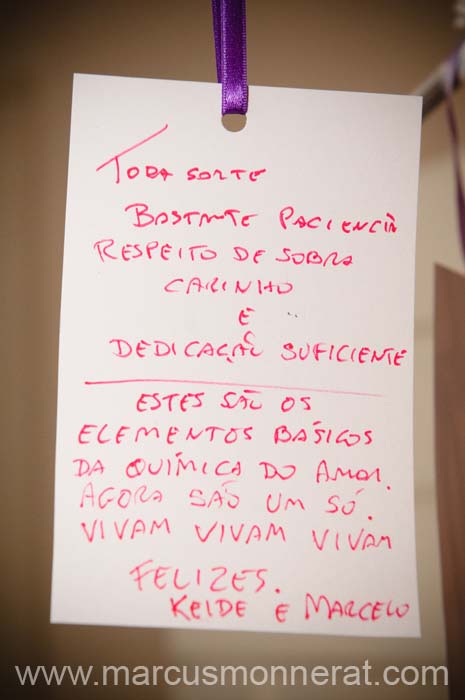 TODA SORTE
BASTANTE PACIENCIA
RESPEITO DE SOBRA
CARINHO
E
DEDICAÇÃO SUFICIENTE
ESTES SÃO OS
ELEMENTOS BÁSICOS
DA QUÍMICA DO AMOR.
AGORA SÃO UM SÓ.
VIVAM VIVAM VIVAM
FELIZES.
KEIDE E MARCELO
www.marcusmonnerat.com